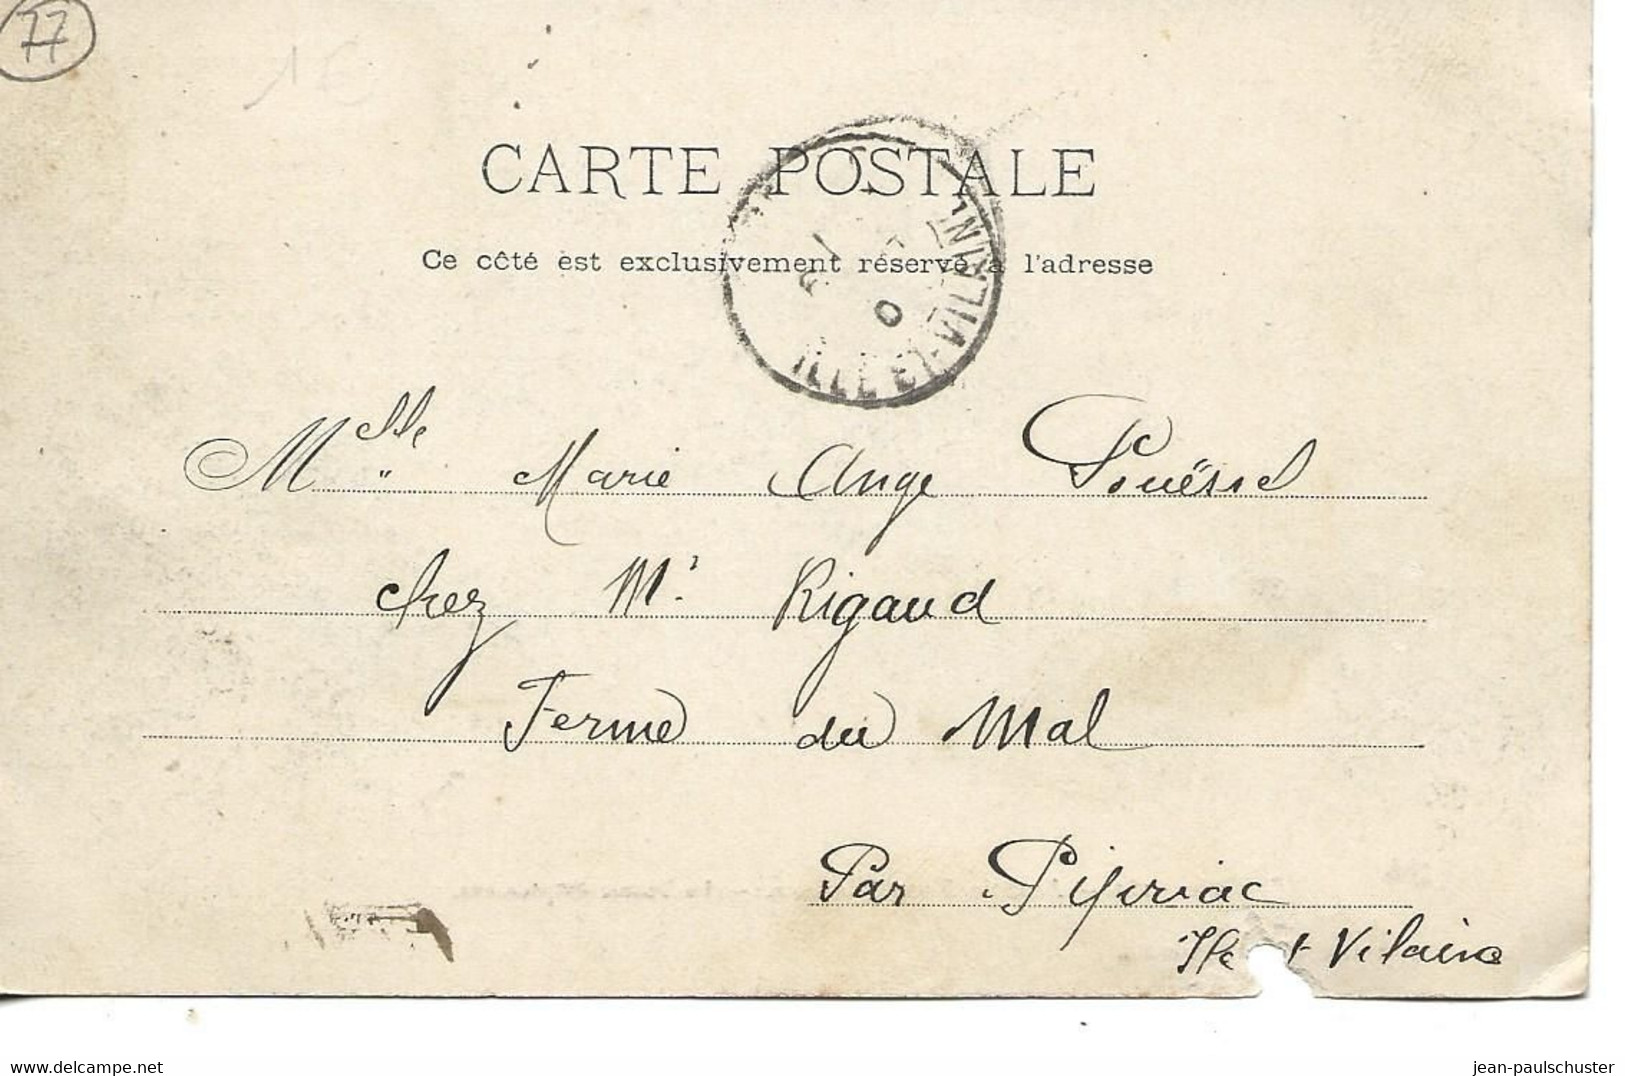 77
1€
CARTE POSTALE
Ce côté est exclusivement réservé à l'adresse
ILLE-ET-VILAINE
Melle Marie Ange Pouëssel
chez Mr Rigaud
Ferme du Mal
Par Pipriac
www.delcampe.net
jean-paulschuster